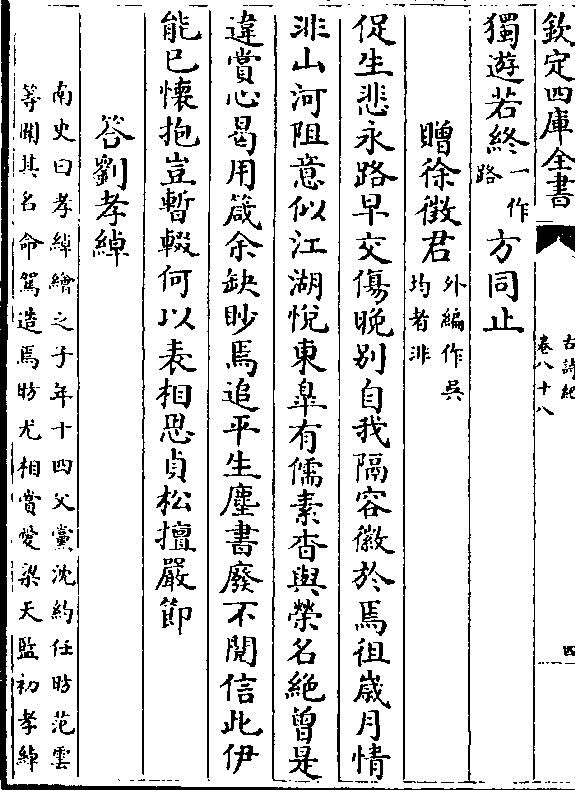 欽定四庫全書
古詩紀
卷八十八
四
獨遊若終一作路方同止
贈徐徵君外編作吳均者非
促生悲永路早交傷晚别自我隔容徽於焉徂歲月情
非山河阻意似江湖悅東皐有儒素杳與榮名絶曾是
違賞心曷用箴余缺眇焉追平生塵書廢不閲信此伊
能已懷抱豈暫輟何以表相思貞松擅嚴節
答劉孝綽
南史曰孝綽繪之子年十四父黨沈約任昉范雲
等聞其名命駕造焉昉尤相賞愛梁天監初孝綽